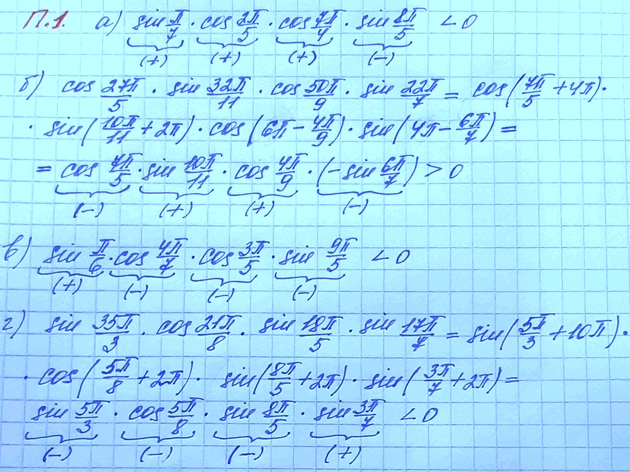 П.1. а) sin π/7 · cos 2π/5 · cos 7π/4 · sin 8π/5 < 0
(+) (+) (+) (-)
б) cos 27π/5 · sin 32π/11 · cos 50π/9 · sin 22π/7 = cos(7π/5 + 4π) ·
· sin(10π/11 + 2π) · cos(6π - 4π/9) · sin(4π - 6π/7) =
= cos 7π/5 · sin 10π/11 · cos 4π/9 · (- sin 6π/7) > 0
(-) (+) (+) (-)
в) sin π/6 · cos 4π/7 · cos 3π/5 · sin 9π/5 < 0
(+) (-) (-) (-)
г) sin 35π/3 · cos 21π/8 · sin 18π/5 · sin 17π/7 = sin(5π/3 + 10π) ·
· cos(5π/8 + 2π) · sin(8π/5 + 2π) · sin(3π/7 + 2π) =
sin 5π/3 · cos 5π/8 · sin 8π/5 · sin 3π/7 < 0
(-) (-) (-) (+)